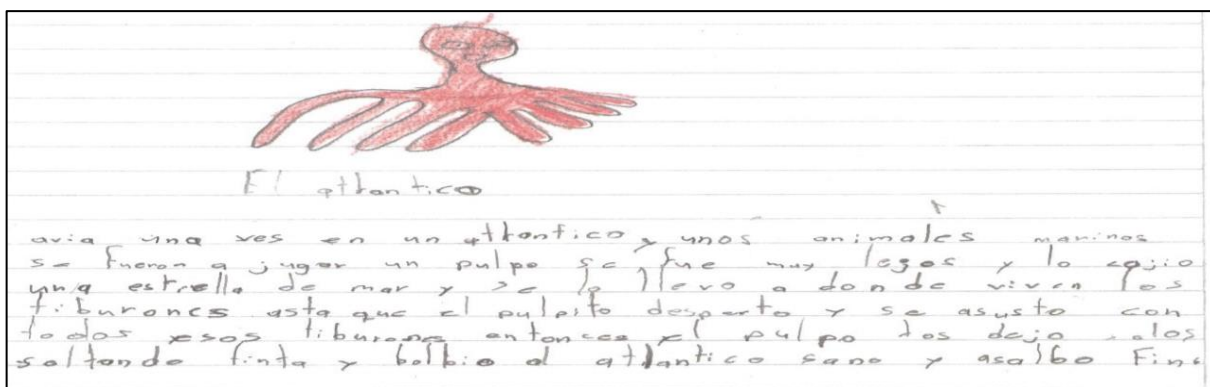 El atlantico
avia una ves en un atlantico y unos animales marinos
se fueron a jugar un pulpo se fue muy legos y lo cojio
una estrella de mar y se lo llevo a donde viven los
tiburones asta que el pulpito desperto y se asusto con
todos esos tiburones entonces el pulpo los dejo
soltando tinta y bolbio al atlantico sano y asalbo Fin